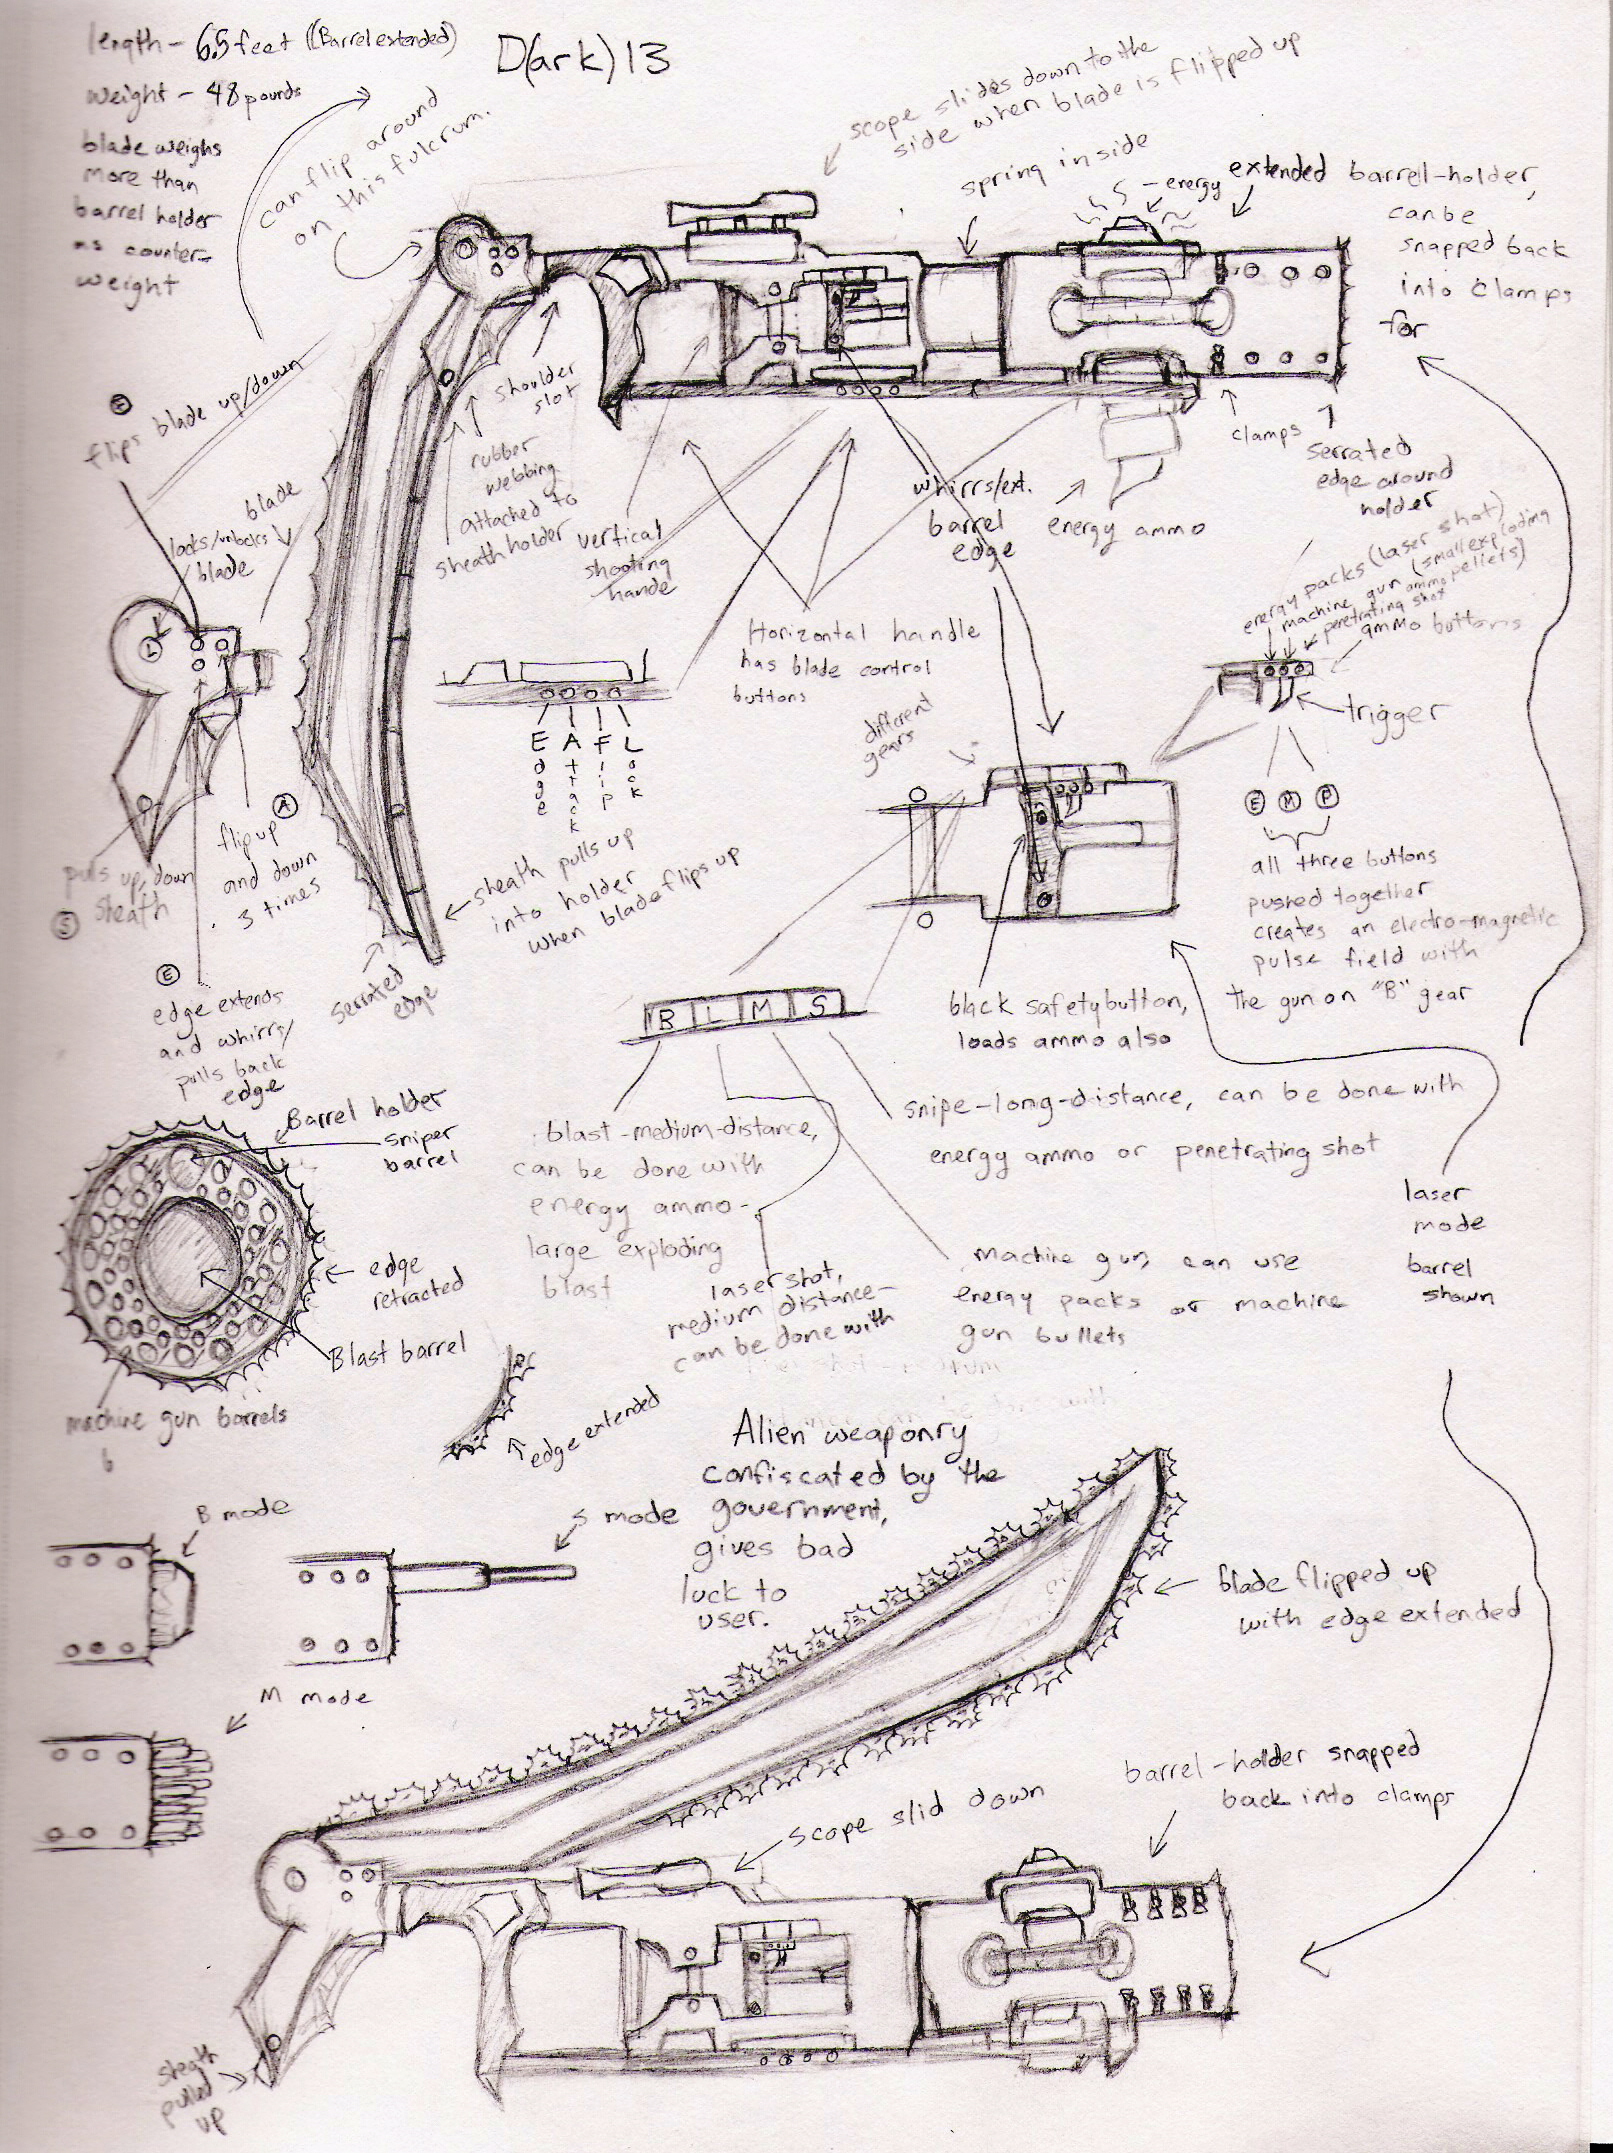 length - 6.5 feet (Barrel extended)
weight - 48 pounds
blade weighs
more than
barrel holder
as counter-
weight
D(ark)13
can flip around
on this fulcrum.
scope slides down to the
side when blade is flipped up
spring inside
-energy
extended barrell-holder,
can be
snapped back
into clamps
for
F
flips blade up/down
blade
locks/unlocks
blade
L
shoulder
slot
rubber
webbing
attached to
sheath holder
vertical
shooting
hande
whirrs/ext.
barrel
edge
energy ammo
clamps
serrated
edge around
holder
energy packs (laser shot)
machine gun ammo (small exploding
pellets)
penetrating shot
ammo buttons
trigger
Horizontal handle
has blade control
buttons
different
gears
E A F L
Edge
Attack
Flip
Lock
E M P
all three buttons
pushed together
creates an electro-magnetic
pulse field with
the gun on "B" gear
A
flip up
and down
3 times
pulls up, down
S sheath
sheath pulls up
into holder
when blade flips up
serrated
edge
E
edge extends
and whirrs/
pulls back
edge
B L M S
black safety button,
loads ammo also
snipe-long-distance, can be done with
energy ammo or penetrating shot
blast-medium-distance,
can be done with
energy ammo-
large exploding
blast
laser shot,
medium distance-
can be done with
machine gun, can use
energy packs or machine
gun bullets
laser
mode
barrel
shown
Barrel holder
sniper
barrel
edge
retracted
Blast barrel
machine gun barrels
edge extended
Alien weaponry
confiscated by the
government,
gives bad
luck to
user.
B mode
S mode
M mode
blade flipped up
with edge extended
barrel-holder snapped
back into clamps
scope slid down
sheath
pulled
up